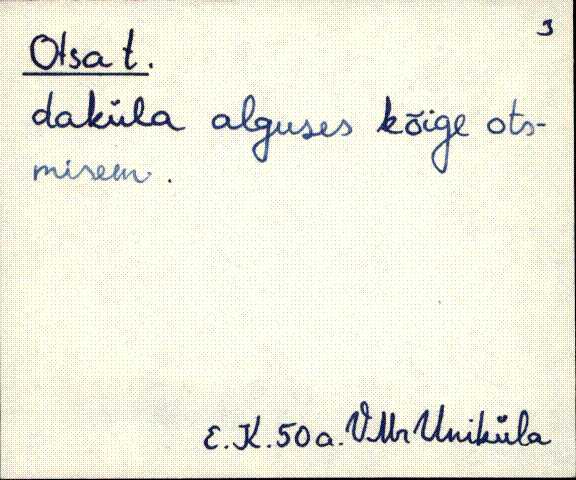 3
Otsa t.
daküla alguses kõige ots-
misem.
E.K. 50 a. VMr Uniküla